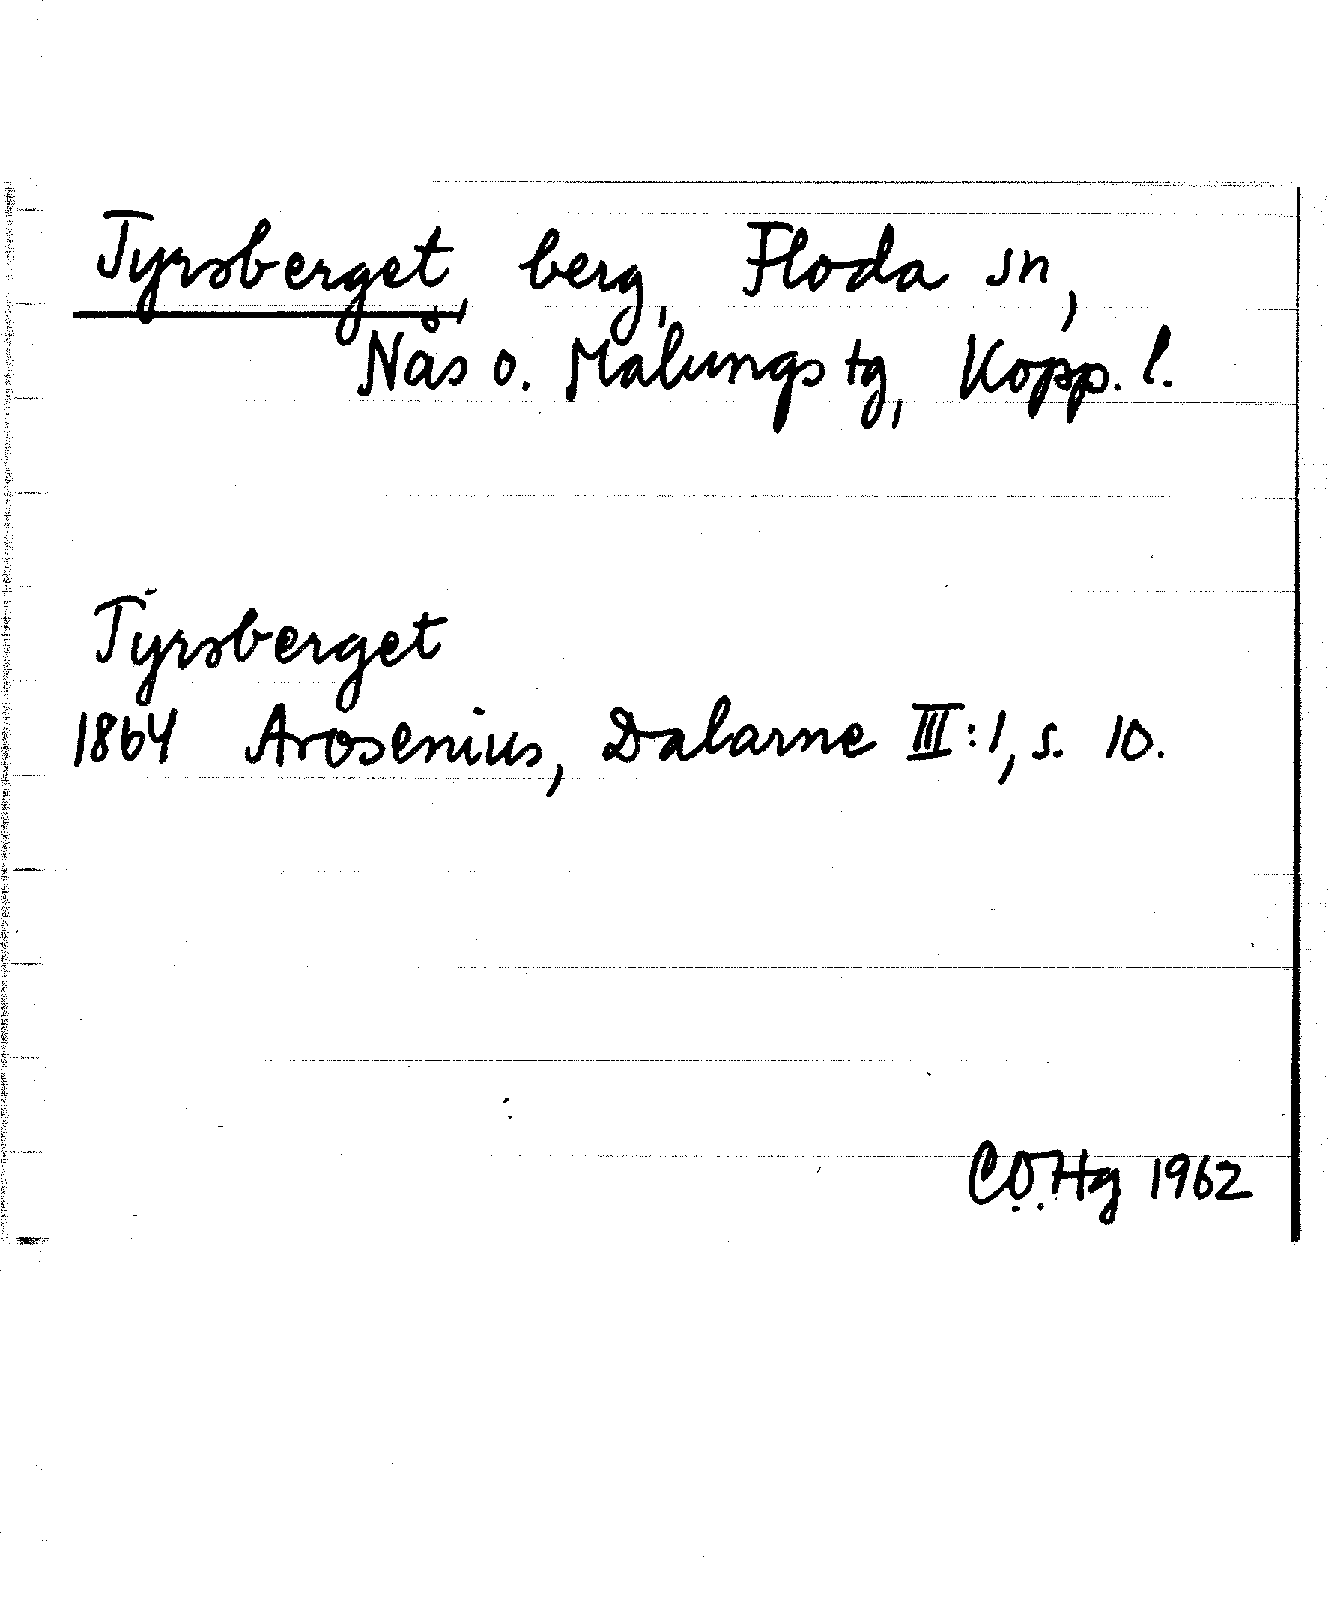 Tyrsberget, berg, Floda sn,
Nås o. Malungs tg, Kopp. l.
Tyrsberget
1864 Arosenius, Dalarne III:1, s. 10.
C.O.Hg 1962